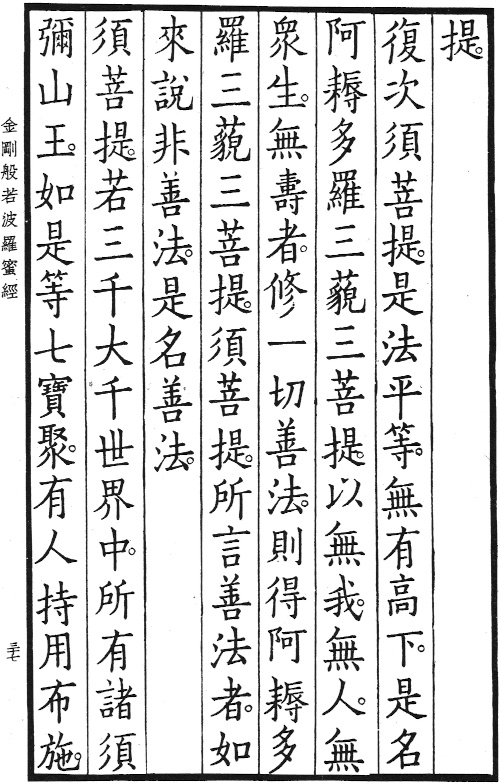 提。
復次須菩提。是法平等。無有高下。是名
阿耨多羅三藐三菩提。以無我。無人。無
衆生。無壽者。修一切善法。則得阿耨多
羅三藐三菩提。須菩提。所言善法者。如
來說非善法。是名善法。
須菩提。若三千大千世界中。所有諸須
彌山王。如是等七寶聚。有人持用布施。
金剛般若波羅蜜經
三七